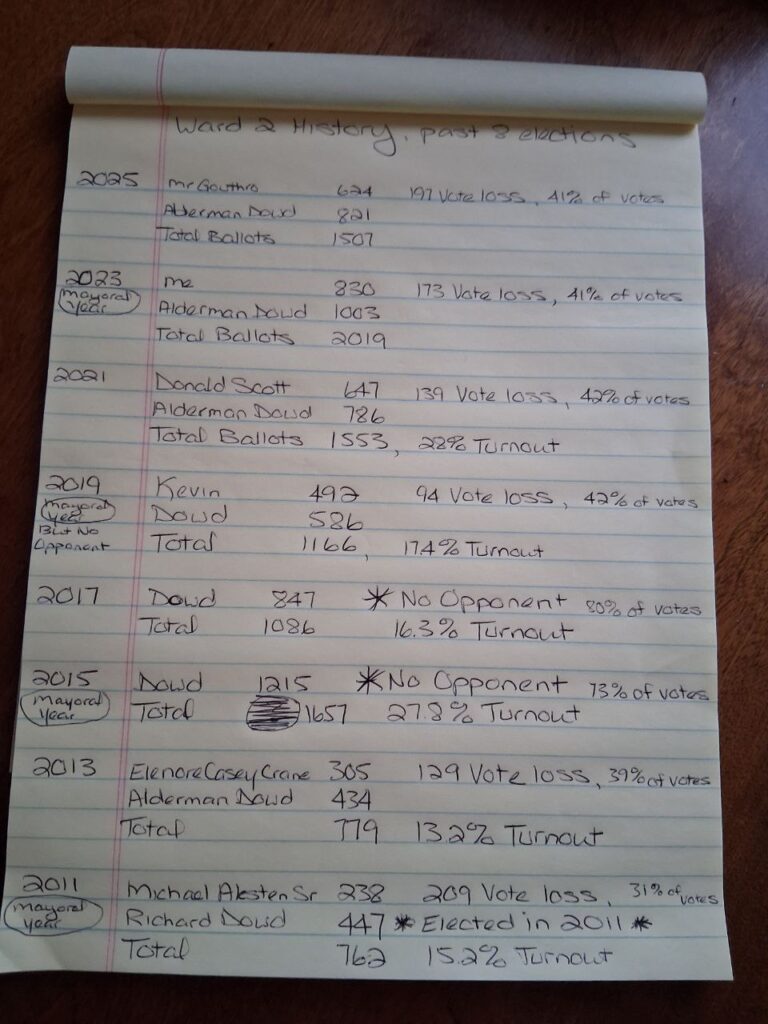 Ward 2 History, past 8 elections
2025 Mr Gouthro 624 197 Vote loss, 41% of votes
Alderman Dowd 821
Total Ballots 1507
2023 me 830 173 Vote loss, 41% of votes
Mayoral Year Alderman Dowd 1003
Total Ballots 2019
2021 Donald Scott 647 139 Vote loss, 42% of votes
Alderman Dowd 786
Total Ballots 1553, 22% Turnout
2019 Kevin 492 94 Vote loss, 42% of votes
Mayoral year Dowd 586
But No Opponent Total 1166, 17.4% Turnout
2017 Dowd 847 * No Opponent 80% of votes
Total 1086 16.3% Turnout
2015 Dowd 1215 * No Opponent 73% of votes
Mayoral Year Total 1657 27.8% Turnout
2013 Elenore Casey Crane 305 129 Vote loss, 39% of votes
Alderman Dowd 434
Total 779 13.2% Turnout
2011 Michael Sr 238 209 Vote loss, 31% of votes
Mayoral year Richard Dowd 447 * Elected in 2011 *
Total 762 15.2% Turnout